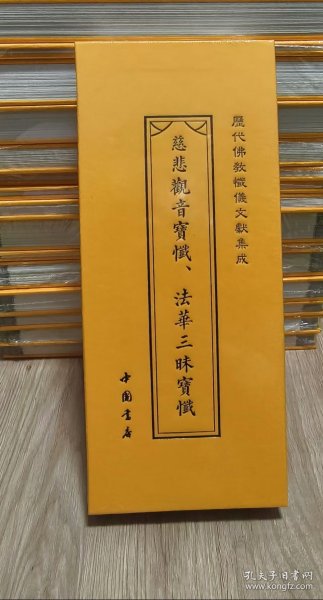 歷代佛教懺儀文獻集成
慈悲觀音寶懺、法華三昧寶懺
中國書店
孔夫子旧书网
www.kongfz.com